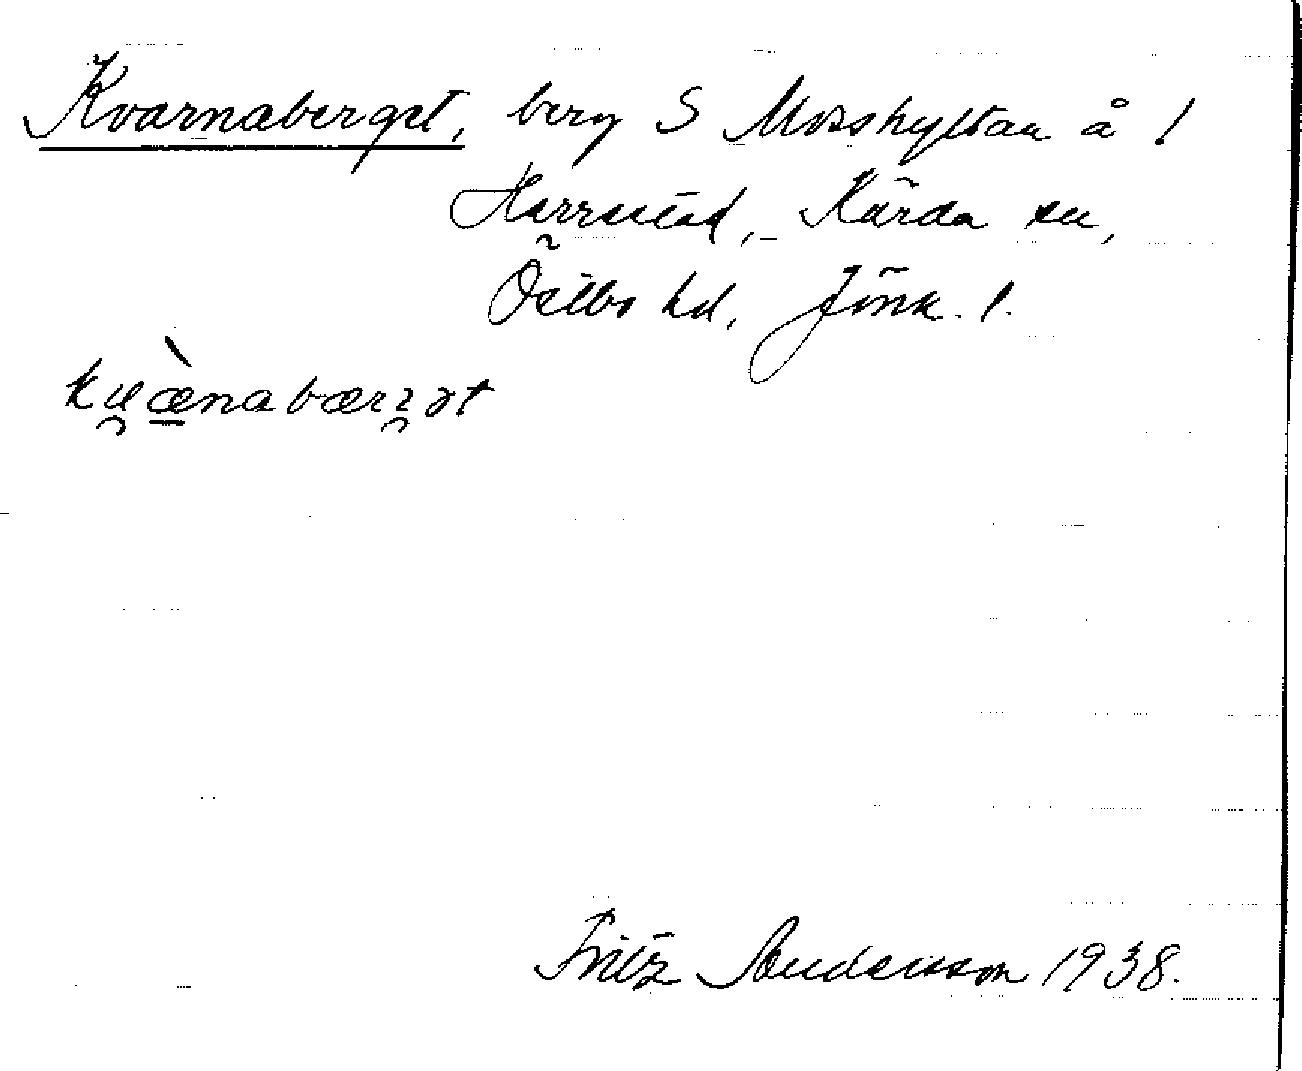 Kvarnaberget, berg S Mosshyltan å !
Harrastad, Kärda sn,
Östbo hd, Jönk. l.
Fritz Andersson 1938.